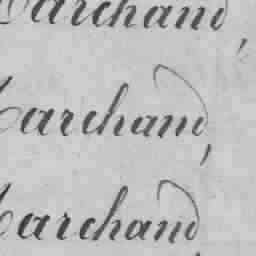 Marchand,
Marchand,
Marchand,